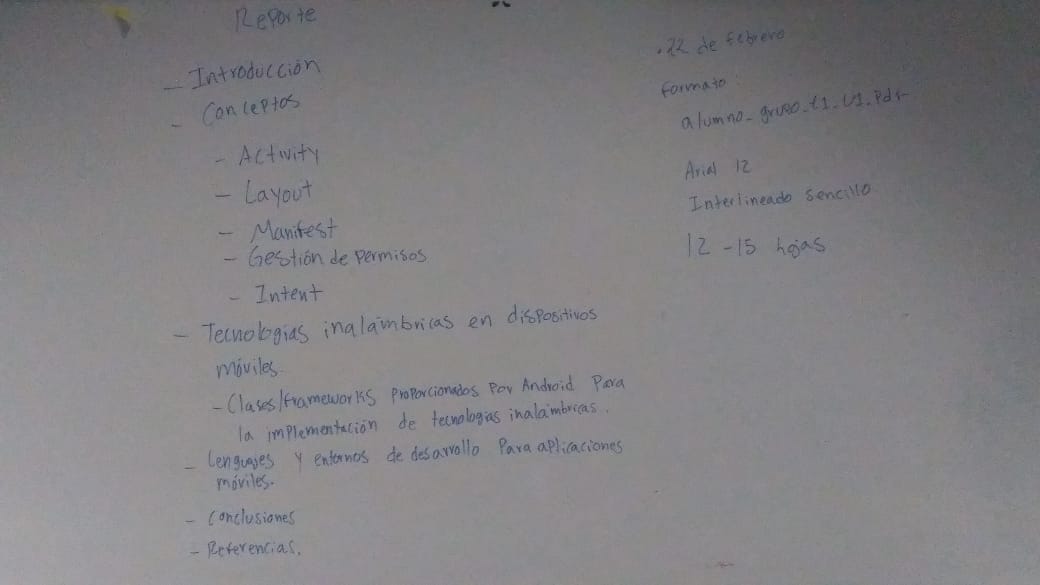 Reporte
- Introducción
- Conceptos
- Activity
- Layout
- Manifest
- Gestión de permisos
- Intent
- Tecnologías inalámbricas en dispositivos
móviles.
- Clases/frameworks proporcionados por Android para
la implementación de tecnologías inalámbricas.
- Lenguajes y entornos de desarrollo para aplicaciones
móviles.
- Conclusiones
- Referencias.
.22 de febrero
Formato:
alumno_grupo_t1_U1.pdf
Arial 12
Interlineado sencillo
12 - 15 hojas